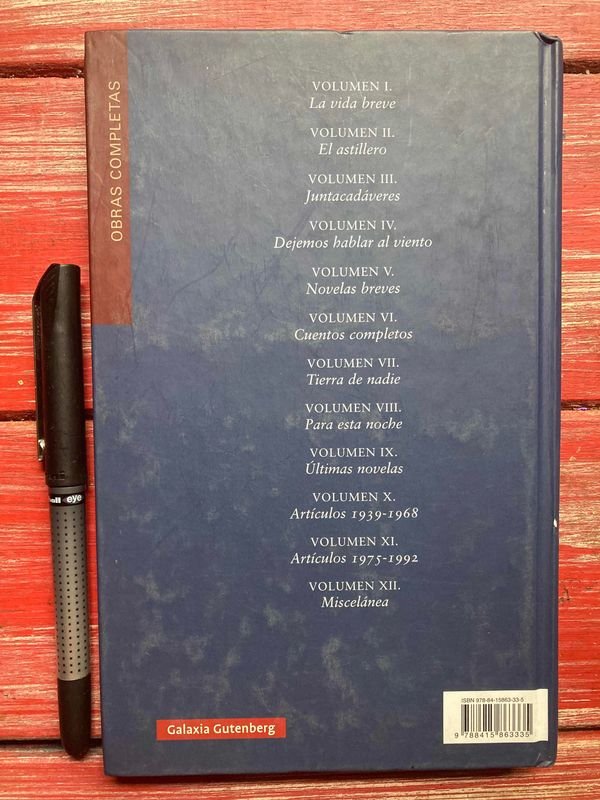 OBRAS COMPLETAS
VOLUMEN I.
La vida breve
VOLUMEN II.
El astillero
VOLUMEN III.
Juntacadáveres
VOLUMEN IV.
Dejemos hablar al viento
VOLUMEN V.
Novelas breves
VOLUMEN VI.
Cuentos completos
VOLUMEN VII.
Tierra de nadie
VOLUMEN VIII.
Para esta noche
VOLUMEN IX.
Últimas novelas
VOLUMEN X.
Artículos 1939-1968
VOLUMEN XI.
Artículos 1975-1992
VOLUMEN XII.
Miscelánea
eye
Galaxia Gutenberg
ISBN 978-84-15863-33-5
9 788415 863335